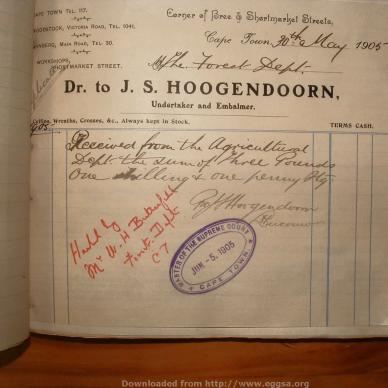 CAPE TOWN TEL. 117.
WOODSTOCK, VICTORIA ROAD, TEL. 1041.
MAIN ROAD, TEL. 30.
WORKSHOPS,
SHORTMARKET STREET.
Corner of Bree & Shortmarket Streets,
Cape Town, 30th May 1905
M The Forest Dept.
Dr. to J. S. HOOGENDOORN,
Undertaker and Embalmer.
Coffins, Wreaths, Crosses, &c., Always kept in Stock.
TERMS CASH.
1905
Received from the Agricultural
Dept the sum of Three Pounds
One shilling & one penny Stg.
Hoogendoorn
Mr W. H.
Dept
C T
MASTER OF THE SUPREME COURT
JUN - 5. 1905
CAPE TOWN
Downloaded from http://www.eggsa.org